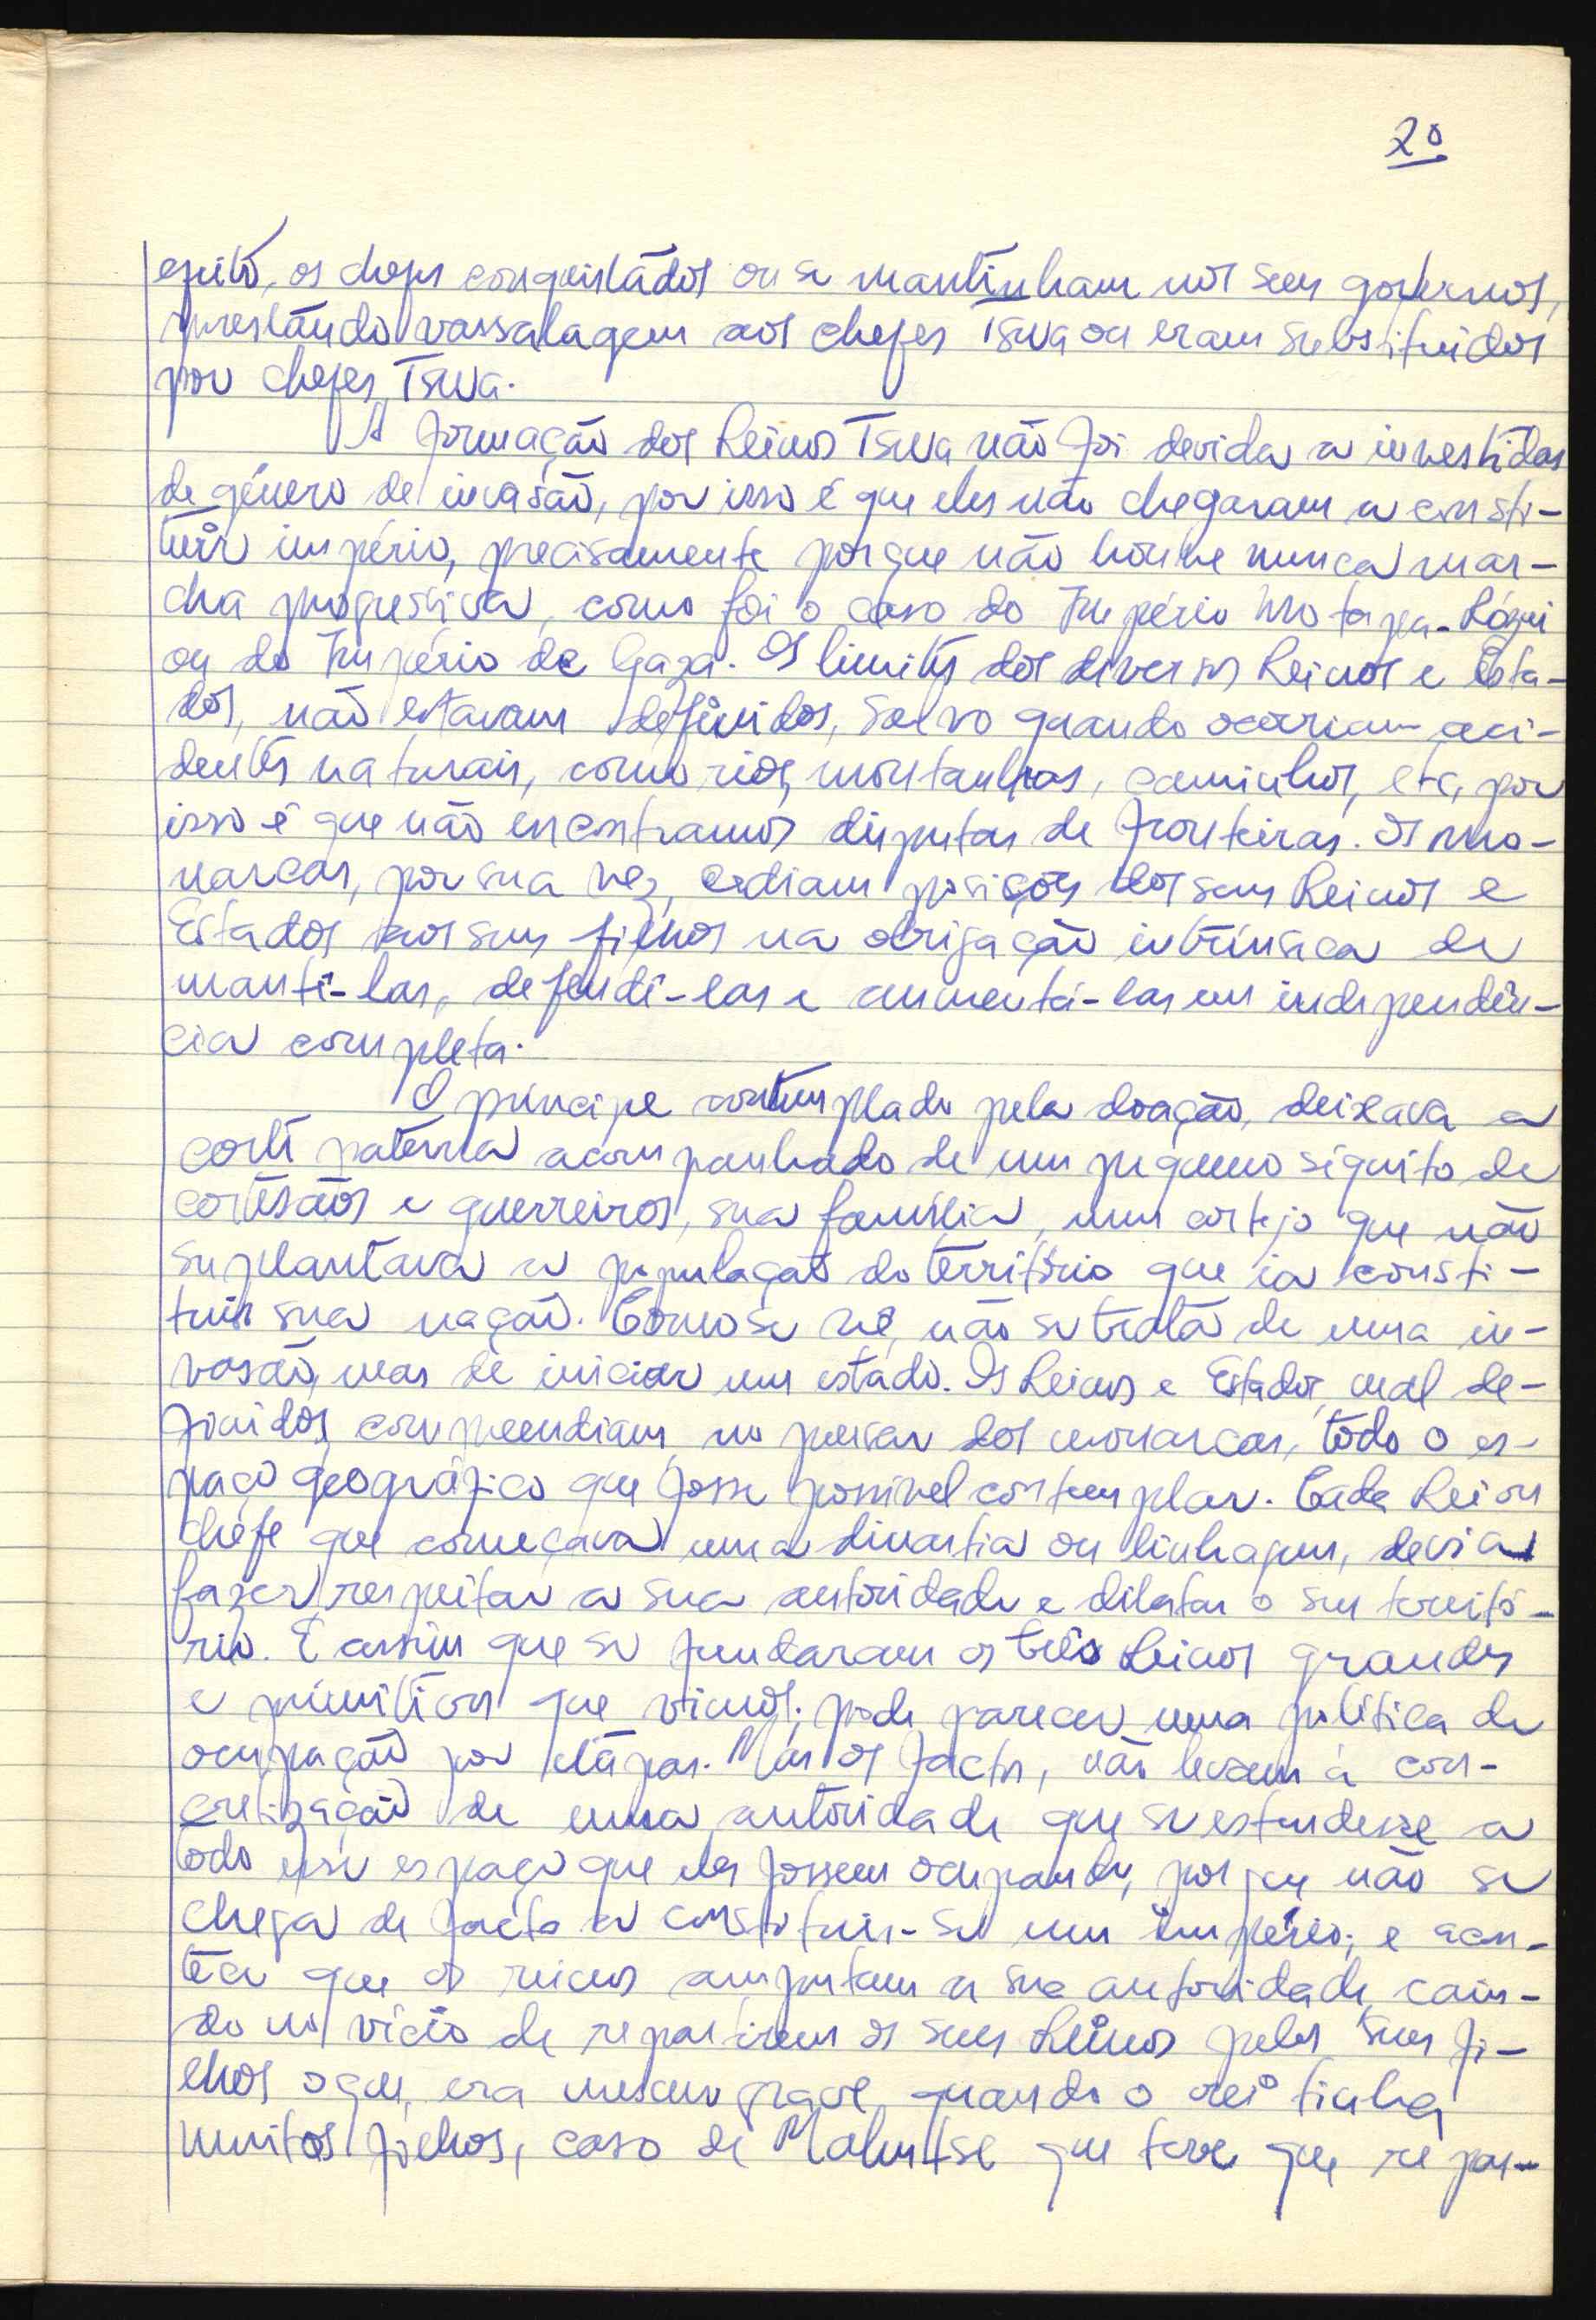 20
epito, os chefes conquistados ou se mantinham nos seus governos,
prestando vassalagem aos chefes Tswa ou eram substituidos
por chefes Tswa.
A formação dos Reinos Tswa não foi devida a investidas
de género de invasão, por isso é que eles não chegaram a consti-
tuir império, precisamente porque não houve nunca mar-
cha progressiva, como foi o caso do Império Motapa-Rózui
ou do Império de Gaza. Os limites dos diversos Reinos e Esta-
dos, não estavam definidos, salvo quando ocorriam aci-
dentes naturais, como rios, montanhas, caminhos, etc, por
isso é que não encontramos disputas de fronteiras. Os mo-
narcas, por sua vez, cediam posições dos seus Reinos e
Estados aos seus filhos na obrigação intrínseca de
mantê-las, defendê-las e aumentá-las em independên-
cia completa.
O principe contemplado pela doação, deixava a
corte paterna acompanhado de um pequeno séquito de
cortesãos e guerreiros, sua família, num cortejo que não
suplantava a população do território que ia consti-
tuir sua nação. Como se vê, não se trata de uma in-
vasão, mas de iniciar um estado. Os Reinos e Estados, mal de-
finidos, compreendiam, no pensar dos monarcas, todo o es-
paço geográfico que fosse possivel contemplar. Cada Rei ou
chefe que começava uma dinastia ou linhagem, devia
fazer respeitar a sua autoridade e dilatar o seu territó-
rio. É assim que se fundaram os três Reinos grandes
e primitivos que vimos; pode parecer uma política de
ocupação por etapas. Mas os factos, não levam à con-
cretização de uma autoridade que se estendesse a
todo esse espaço que eles fossem ocupando, porque não se
chega de facto a constituir-se um império; e acon-
tece que os reinos amputam a sua autoridade, cain-
do no vício de repartirem os seus Reinos pelos seus fi-
lhos o que, era mesmo grave, quando o rei tinha
muitos filhos, caso de que teve que repar-